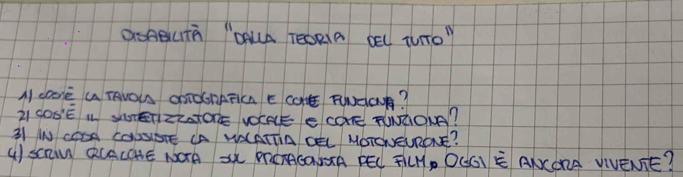 DISABILITÀ "DALLA TEORIA DEL TUTTO"
1) COS'È LA TAVOLA ORTOGRAFICA E COME FUNZIONA?
2) COS'È IL SINTETIZZATORE VOCALE E COME FUNZIONA?
3) IN COSA CONSISTE LA MALATTIA DEL MOTONEURONE?
4) SCRIVI QUALCHE NOTA SUL PROTAGONISTA DEL FILM, OGGI È ANCORA VIVENTE?